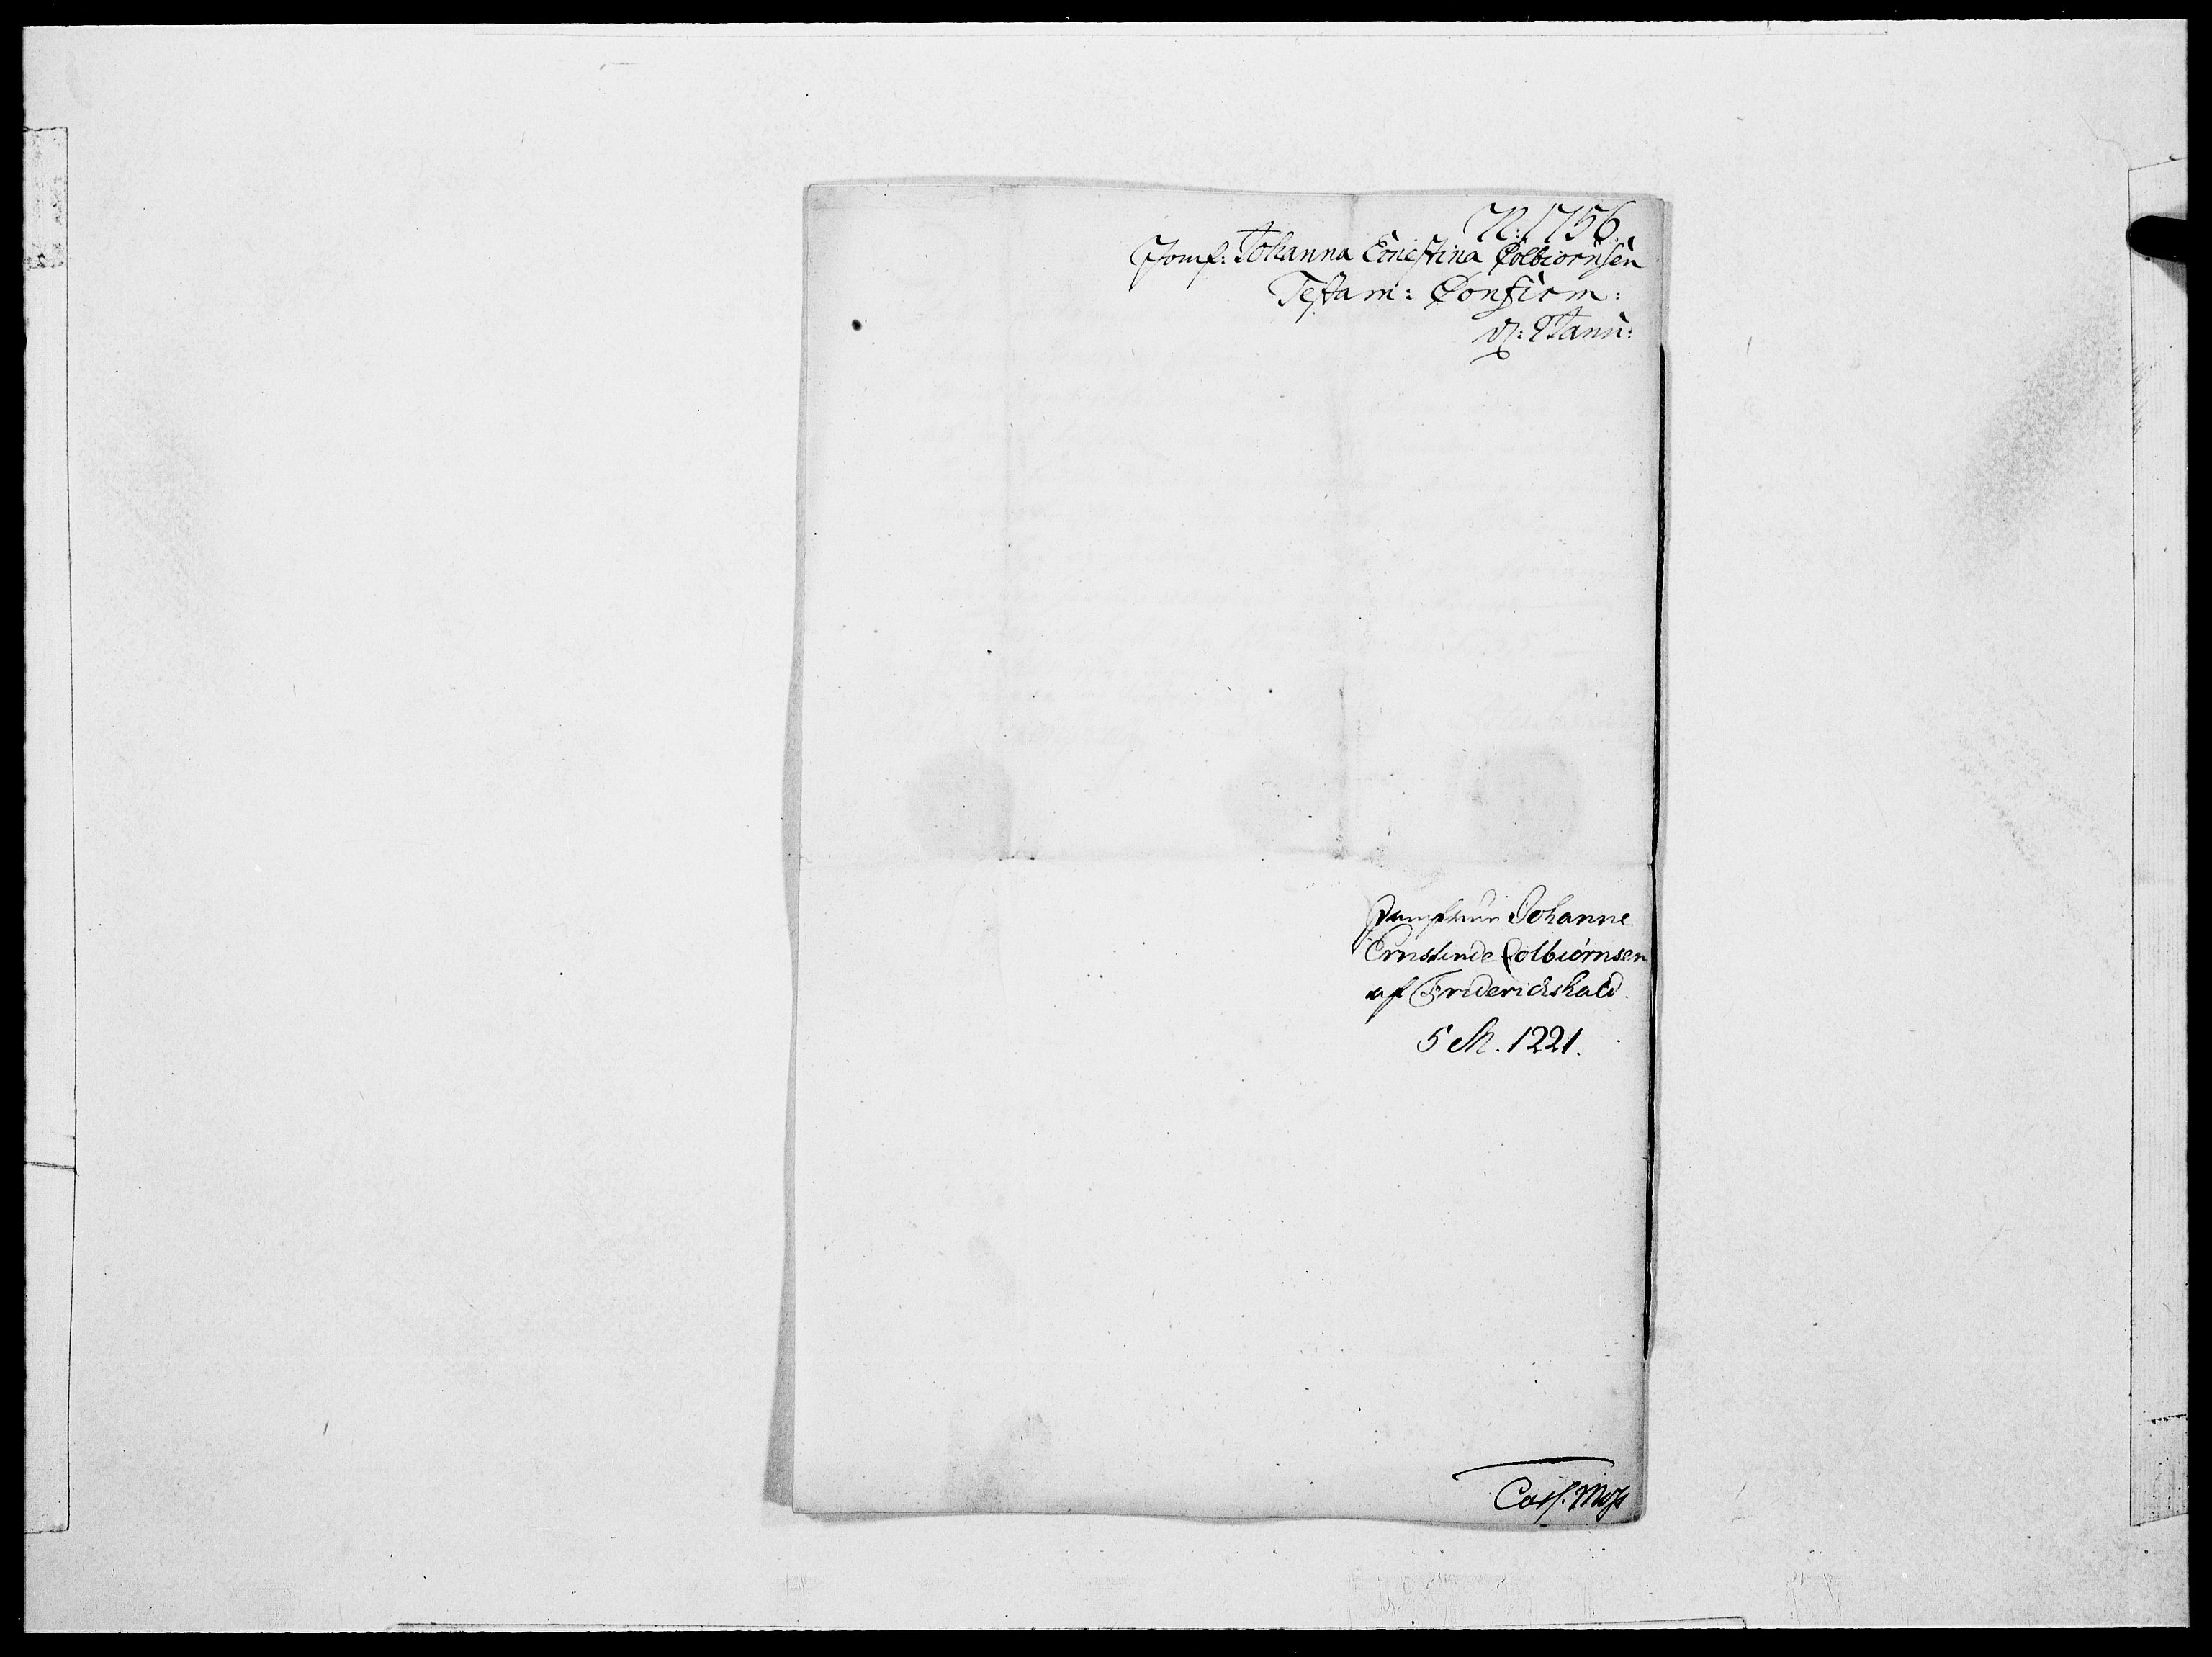 N: 1756.
Jomf: Johanna Ernestina Colbiörnsen
Testam: Confirm:
Jomfrue Johanne
Ernstinde Colbiørnsen
af Friderichshald.
5 M. 1221.